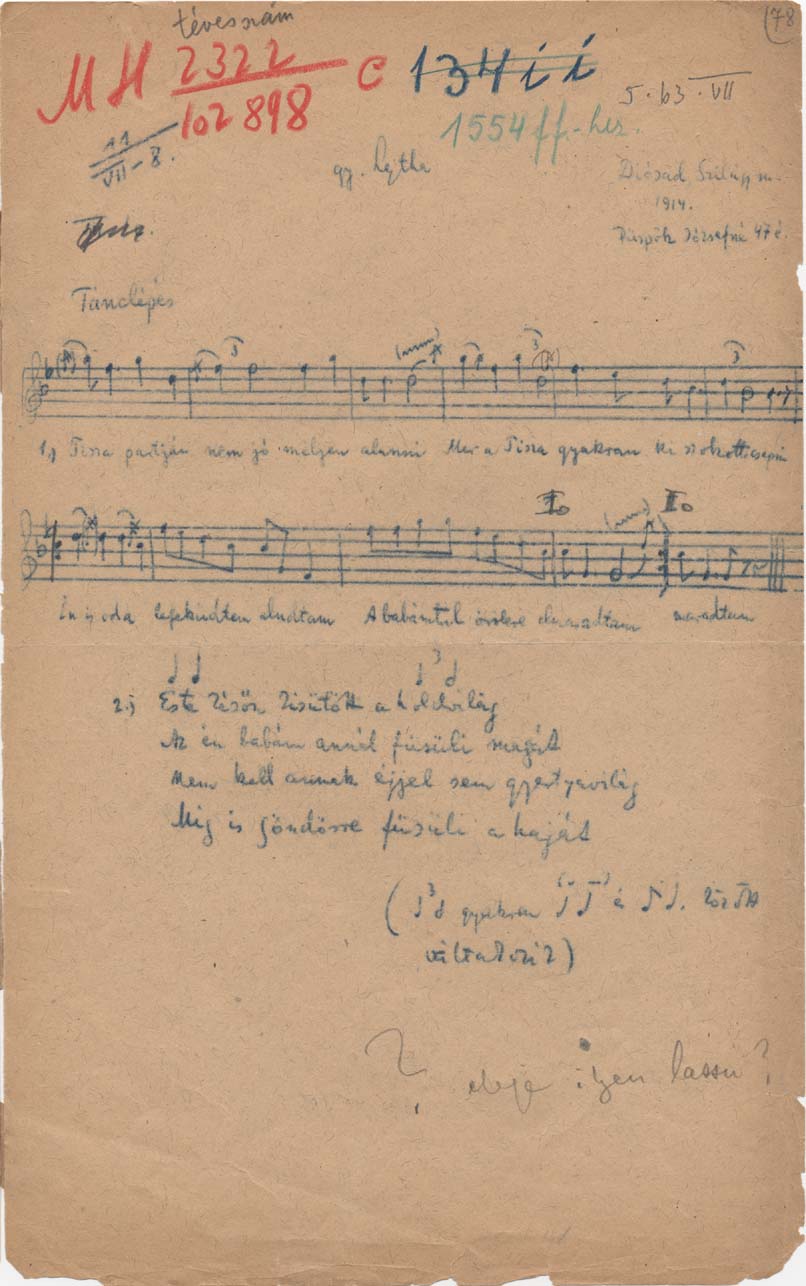 téves szám
(78
MH 2322 C 134 i i
102 898
5. b3. VII
1554 ff.-hez.
11
VII-8.
gy. Lajtha
Diósad Szilágy m.
1914.
Püspök Józsefné 47 é.
Tánclépés
3 3 3
1.) Tisza partján nem jó mélyen alunni Mer a Tisza gyakran ki szokott csapni
I. II.
Én is oda lefeküdtem aludtam A babámtul elmaradtam maradtam
3
2.) Este későn kisütött a holdvilág
Az én babám annál füsüli magát
Nem kell annak éjjel sem gyertyavilág
Míg is göndörre füsüli a haját
( 3 gyakran és között
váltakozik)
? eleje ilyen lassu?